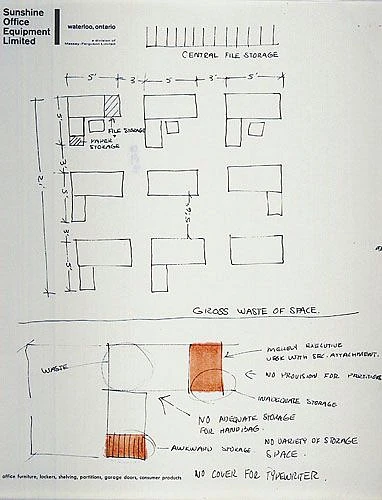 Sunshine
Office
Equipment
Limited
waterloo, ontario
a division of
Massey-Ferguson Limited
CENTRAL FILE STORAGE
5' 3' 5' 3' 5'
5'
FILE STORAGE
PAPER
STORAGE
3'
21'
5'
5'9"
3'
5'
GROSS WASTE OF SPACE.
WASTE
MERELY EXECUTIVE
DESK WITH SEC. ATTACHMENT.
NO PROVISION FOR PARTITION
INADEQUATE STORAGE
NO ADEQUATE STORAGE
FOR HANDBAG.
AWKWARD STORAGE
NO VARIETY OF STORAGE
SPACE.
NO COVER FOR TYPEWRITER.
office furniture, lockers, shelving, partitions, garage doors, consumer products